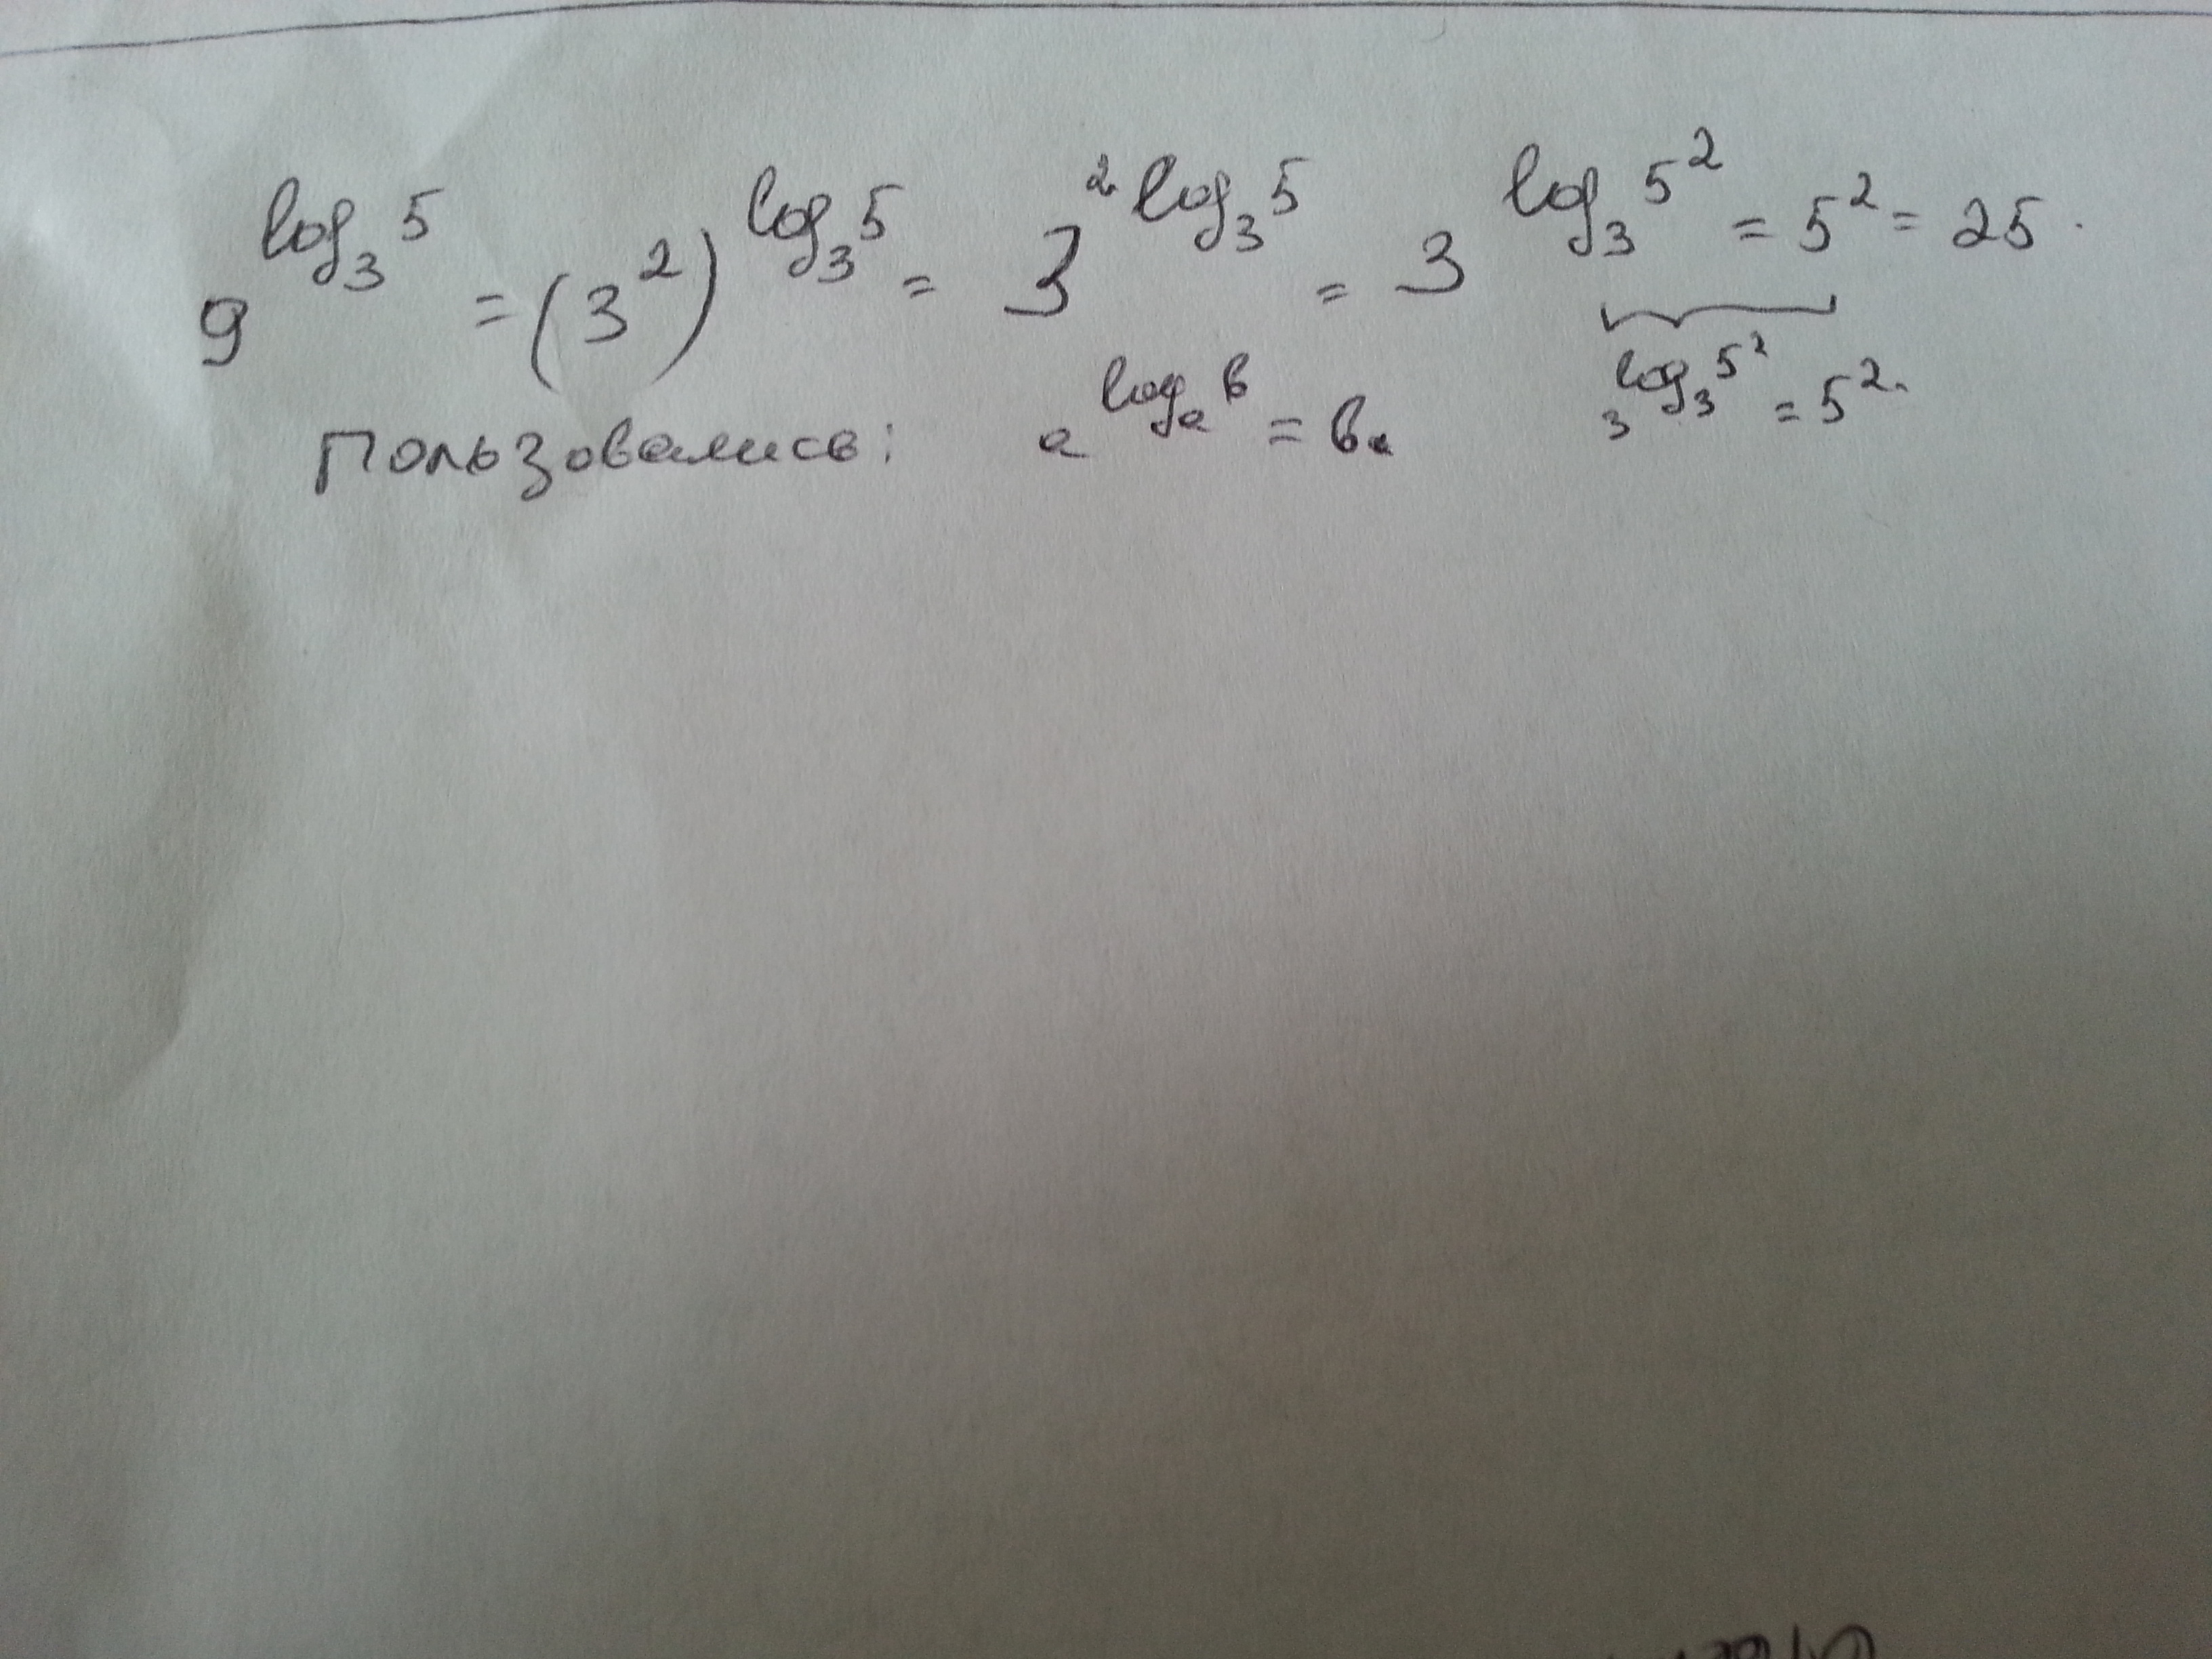 9^{log_3 5} = (3^2)^{log_3 5} = 3^{2 log_3 5} = 3^{log_3 5^2} = 5^2 = 25.
Пользовались: a^{log_a b} = b. 3^{log_3 5^2} = 5^2.